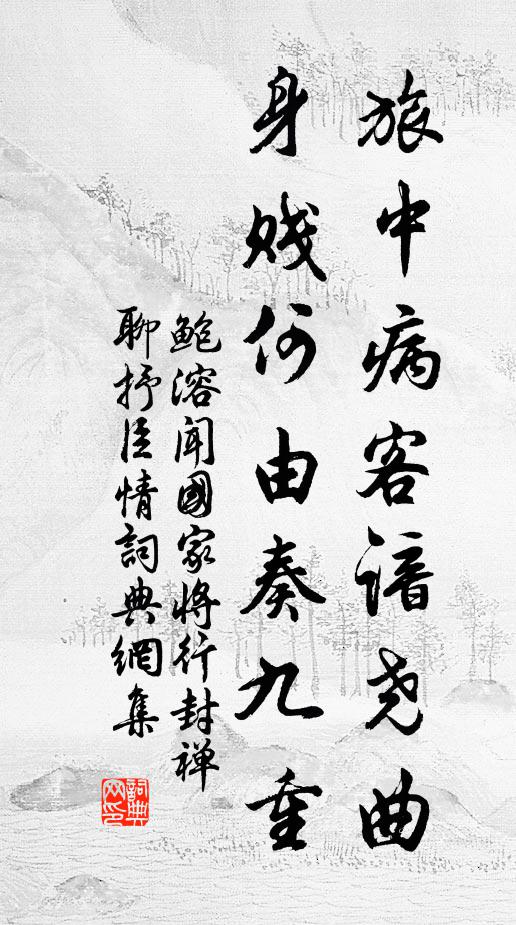 旅中病客谙尧曲
身贱何由奏九重
鲍溶闻國家将行封禅
聊抒臣情詞典網集
詞典網印